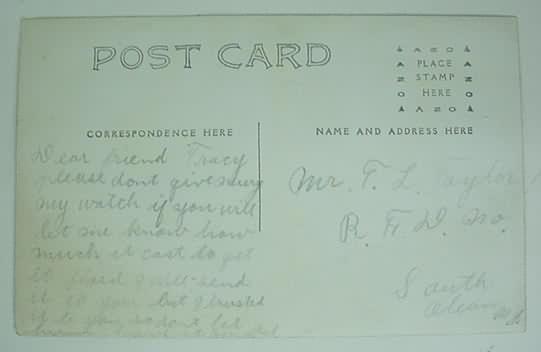 POST CARD
A Z O
PLACE
STAMP
HERE
A Z O
CORRESPONDENCE HERE
NAME AND ADDRESS HERE
Dear friend Tracy
please dont give away
my watch if you will
let me know how
much it cost to get
it fixed I will send
it to you but I trusted
it to you so dont let
Mr. T. L. Taylor
R. F. D. No.
South